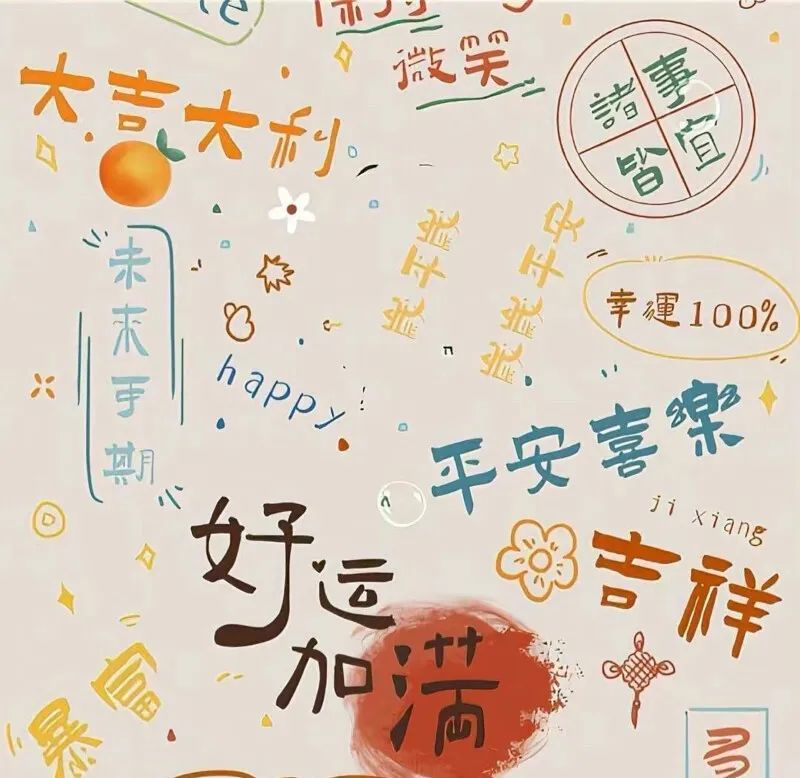 微笑
大吉大利
諸事
皆宜
未来可期
歲平歲
歲歲平安
幸運100%
happy
平安喜樂
ji xiang
吉祥
好运
加满
暴富